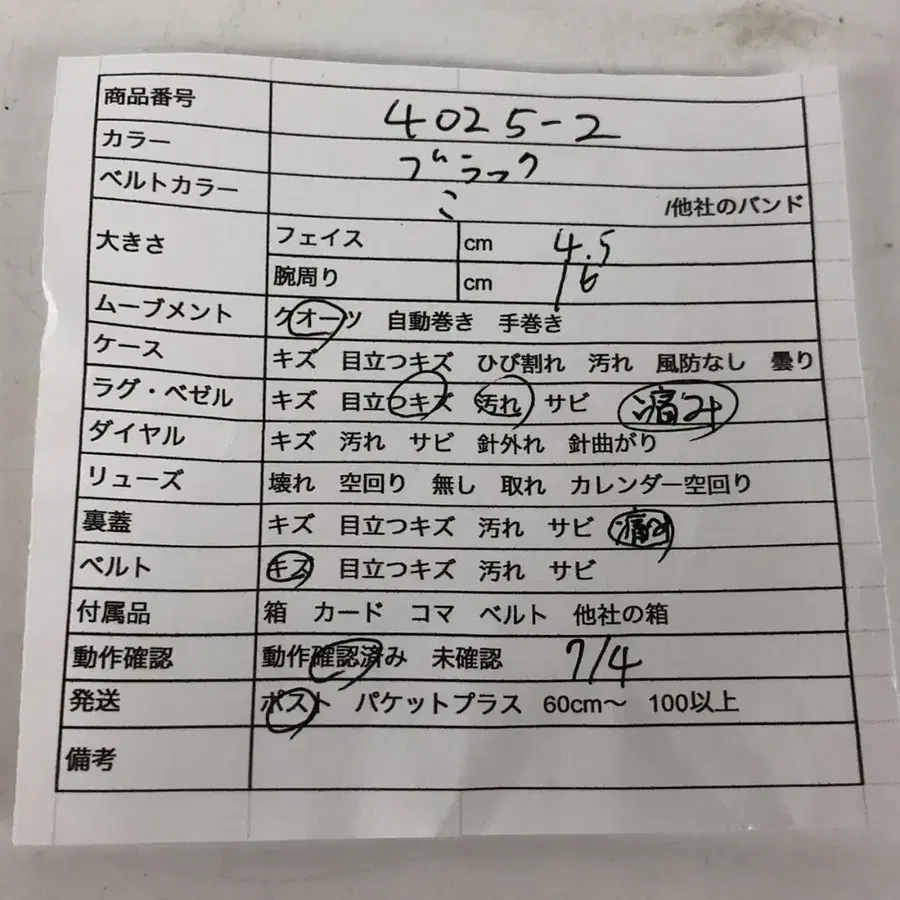 商品番号 4025-2
カラー ブラック
ベルトカラー こ /他社のバンド
大きさ フェイス cm 4.5
腕周り cm 16
ムーブメント クオーツ 自動巻き 手巻き
ケース キズ 目立つキズ ひび割れ 汚れ 風防なし 曇り
ラグ・ベゼル キズ 目立つキズ 汚れ サビ 痛み
ダイヤル キズ 汚れ サビ 針外れ 針曲がり
リューズ 壊れ 空回り 無し 取れ カレンダー空回り
裏蓋 キズ 目立つキズ 汚れ サビ 痛み
ベルト キズ 目立つキズ 汚れ サビ
付属品 箱 カード コマ ベルト 他社の箱
動作確認 動作確認済み 未確認 7/4
発送 ポスト パケットプラス 60cm〜 100以上
備考